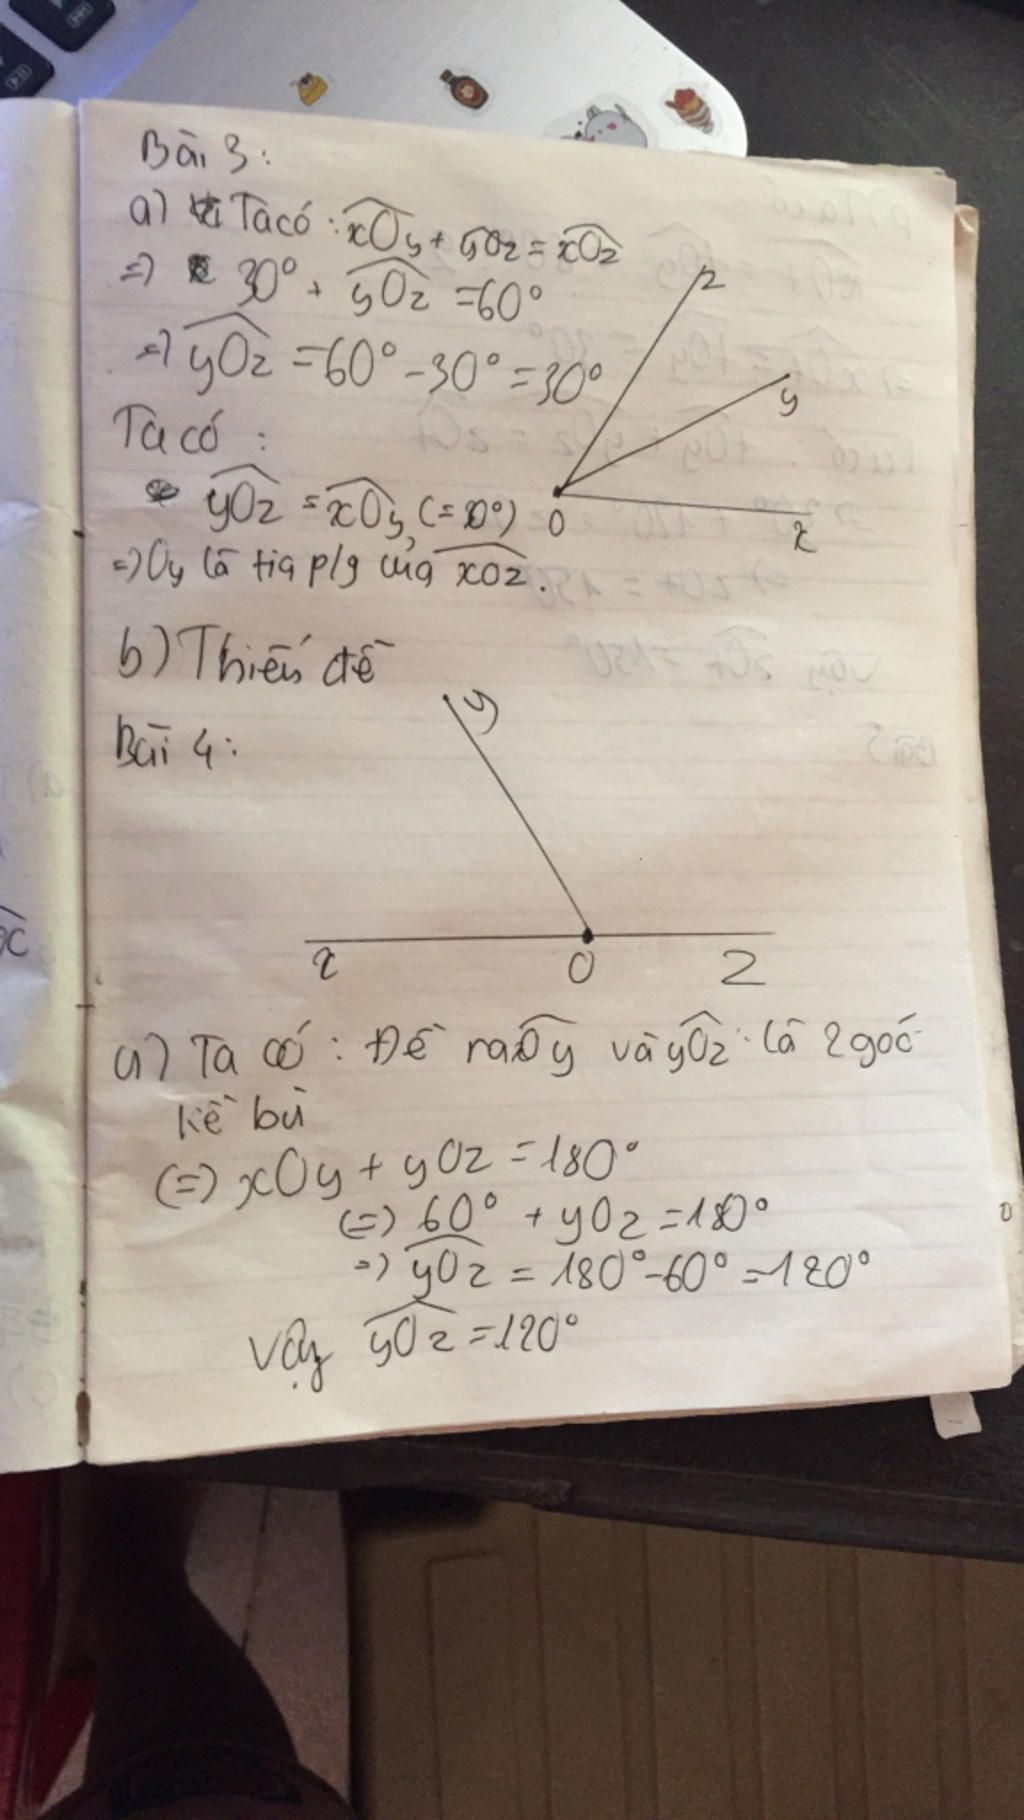 Bài 3:
a) Ta có: xOy + yOz = xOz
=) 30° + yOz = 60°
=) yOz = 60° - 30° = 30°
z
y
O
x
Ta có:
yOz = xOy (= 30°)
=) Oy là tia p/g của xOz.
b) Thiếu đề
Bài 4:
y
x O z
a) Ta có: Đề ra xOy và yOz là 2 góc
kề bù
(=) xOy + yOz = 180°
(=) 60° + yOz = 180°
=) yOz = 180° - 60° = 120°
Vậy yOz = 120°